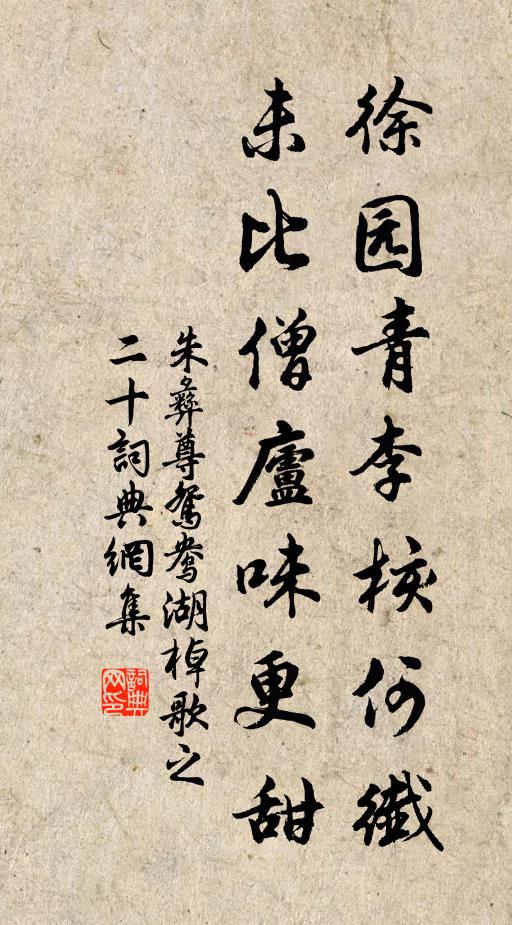 徐园青李核何纖
未比僧廬味更甜
朱彝尊鴛鴦湖棹歌之
二十詞典網集
詞典网印